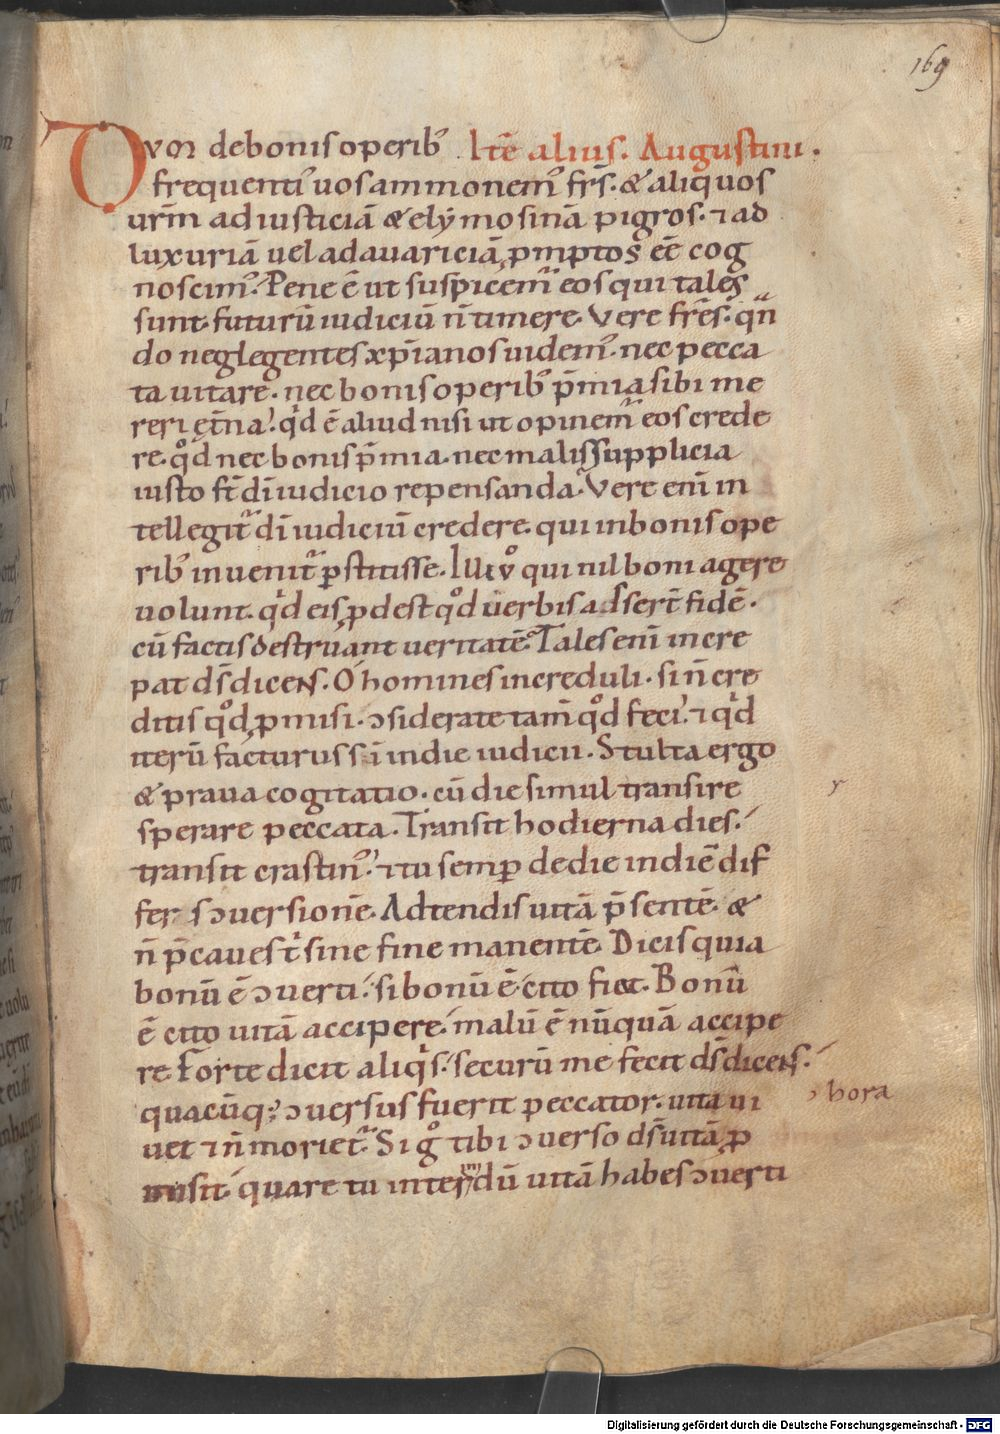 169
Quotı de bonis operib᾽ . Itē alius. Augustini.
frequenti᾽ uos ammonem᾽ frs̄. & aliquos
urm̄ ad iusticiā & elymosinā pigros. ⁊ ad
luxuriā uel ad auariciā ꝓmptos eē cog
noscim᾽. Pene ē ut suspicem᷒ eos qui tales
sunt futurū iudiciū n̄ timere. Vere frēs. qn̄
do neglegentes xp̄ianos uidem᾽. nec pecca
ta uitare. nec bonis operib᾽ p̄mia sibi me
reri ęt̄na. qͥd ē aliud nisi ut opinem᷒ eos crede
re. qͦd nec bonis p̄mia. nec malis supplicia
iusto ft̄ dī iudicio repensanda. Vere enī in
tellegit᷒ dī iudiciū credere. qui in bonis ope
rib᾽ inuenit᷒ p̄stitisse. Illi ṽ qui nil boni agere
uolunt. qͥd eis ꝓdest qͦd uerbis adsert̄ fidē.
cū factis destruant ueritatē. Tales enī incre
pat ds̄ dicens. O homines increduli. si n̄ cre
ditis qͦd ꝓmisi. ɔsiderate tam̄ qͦd feci. ⁊ qͥd
iterū facturus sī in die iudicii. Stulta ergo
& praua cogitatio. cū die simul transire
sperare peccata. Transit hodierna dies.
transit crastin᾽. ⁊ tu semꝑ de die in diē dif
fers ɔuersionē. Adtendis uitā p̄sentē. &
n̄ p̄caues tͥ sine fine manentē. Dicis quia
bonū ē ɔuerti. si bonū ē cito fiat. Bonū
ē cito uitā accipere. malū ē nūquā accipe
re. Forte dicit aliqͥs. securū me fecit ds̄ dicens.
quacūq; ɔuersus fuerit peccator. uita ui ɔ hora
uet ⁊ n̄ moriet᷒. Si gͦ tibi ɔuerso ds̄ uitā ꝓ
misit. quare tu interdū uitā habes ɔuerti
Digitalisierung gefördert durch die Deutsche Forschungsgemeinschaft - DFG